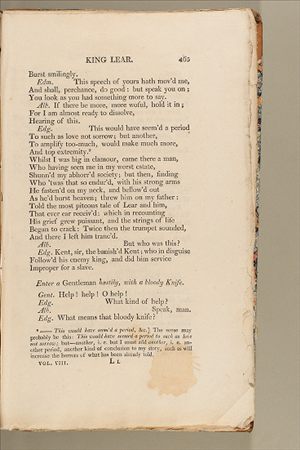 KING LEAR. 465
Burst smilingly.
Edm. This speech of yours hath mov'd me,
And shall, perchance, do good: but speak you on;
You look as you had something more to say.
Alb. If there be more, more woful, hold it in;
For I am almost ready to dissolve,
Hearing of this.
Edg. This would have seem'd a period
To such as love not sorrow; but another,
To amplify too-much, would make much more,
And top extremity.⁹
Whilst I was big in clamour, came there a man,
Who having seen me in my worst estate,
Shunn'd my abhorr'd society; but then, finding
Who 'twas that so endur'd, with his strong arms
He fasten'd on my neck, and bellow'd out
As he'd burst heaven; threw him on my father;
Told the most piteous tale of Lear and him,
That ever ear receiv'd: which in recounting
His grief grew puissant, and the strings of life
Began to crack: Twice then the trumpet sounded,
And there I left him tranc'd.
Alb. But who was this?
Edg. Kent, sir, the banish'd Kent; who in disguise
Follow'd his enemy king, and did him service
Improper for a slave.
Enter a Gentleman hastily, with a bloody Knife.
Gent. Help! help! O help!
Edg. What kind of help?
Alb. Speak, man.
Edg. What means that bloody knife?
⁹ —— This would have seem'd a period, &c.] The sense may
probably be this: This would have seemed a period to such as love
not sorrow; but—another, i. e. but I must add another, i. e. an-
other period, another kind of conclusion to my story, such as will
increase the horrors of what has been already told.
VOL. VIII. L l